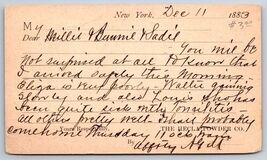 New York, Dec 11 1883
$3.00
My
Dear Millie & Bunnie & Sadie
You will be
not surprised at all to Know that
I arrived safely this Morning
Eliza is very poorly - Hattie gaining
Slowly and also Louie. She has
been quite sick with tonsilitis -
All others pretty well. I shall probably
come home Thursday 1 oclock train
Yours Respectfully,
THE HECLA POWDER CO.
By